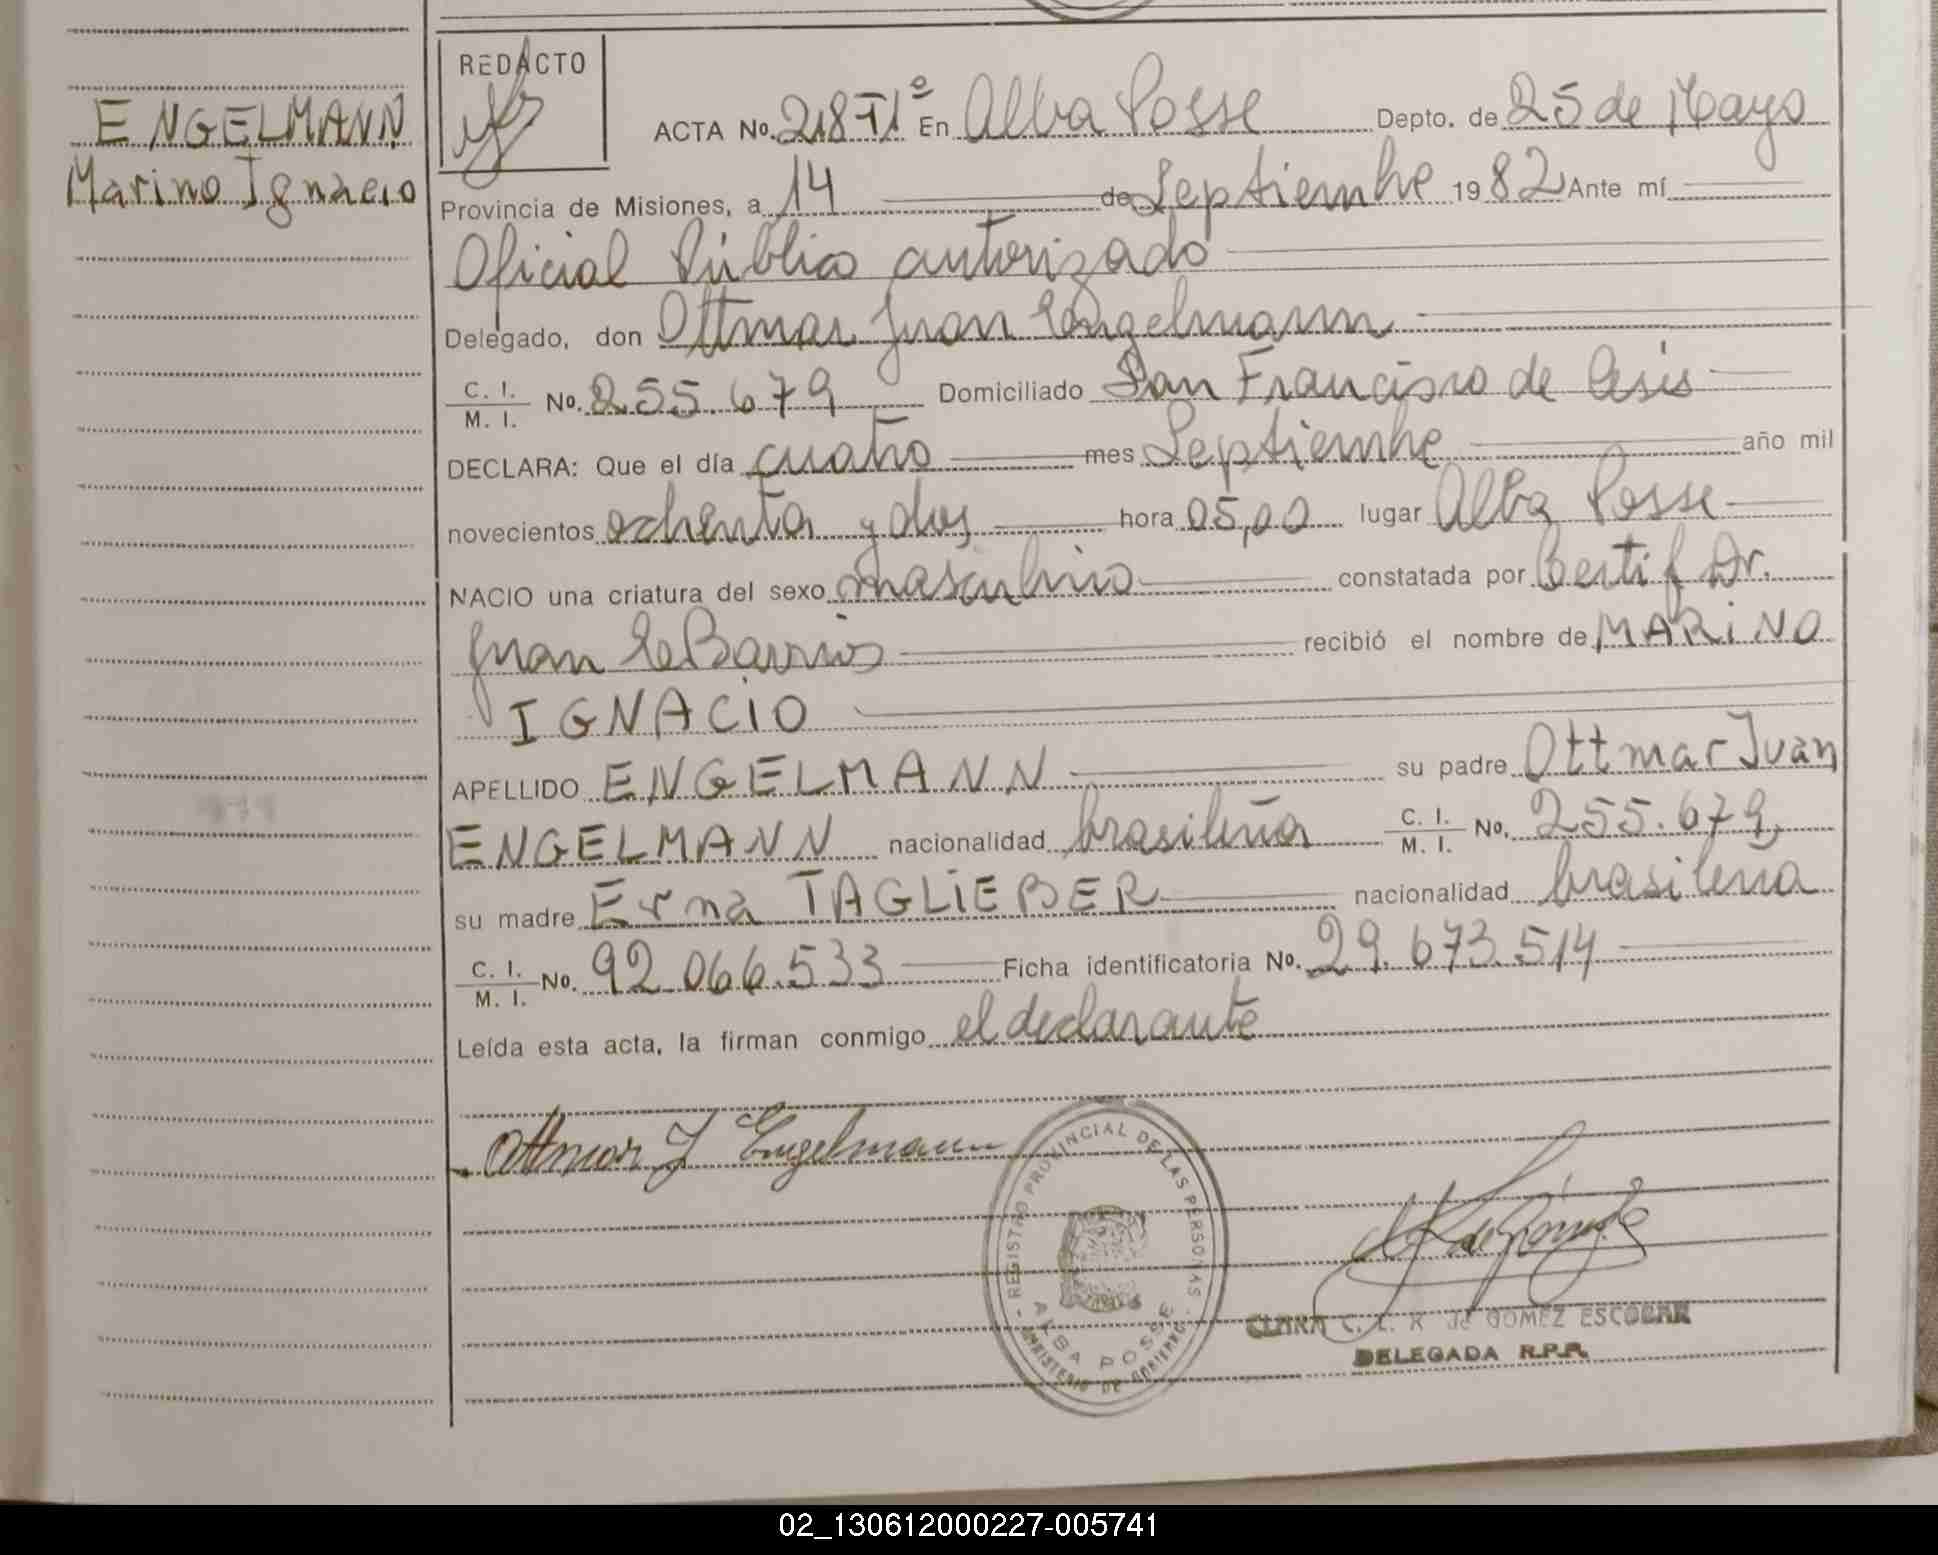 ENGELMANN
Marino Ignacio
REDACTO
ACTA No. 218 TIº En Alba Posse Depto. de 25 de Mayo
Provincia de Misiones, a 14 de Septiembre 1982 Ante mí
Oficial Público autorizado
Delegado, don Ottmar Juan Engelmann
C. I. / M. I. No. 255.679 Domiciliado San Francisco de Asis
DECLARA: Que el día cuatro mes Septiembre año mil
novecientos ochenta y dos hora 05,00 lugar Alba Posse
NACIO una criatura del sexo masculino constatada por Certif Dr.
Juan Barrios recibió el nombre de MARINO
IGNACIO
APELLIDO ENGELMANN su padre Ottmar Juan
ENGELMANN nacionalidad brasileña C. I. / M. I. No. 255.679,
su madre Erna TAGLIEBER nacionalidad brasileña
C. I. / M. I. No. 92.066.533 Ficha identificatoria No. 29.673.514
Leída esta acta, la firman conmigo el declarante
Ottmar J Engelmann
REGISTRO PROVINCIAL DE LAS PERSONAS
ALBA POSSE
MINISTERIO DE GOBIERNO
CLARA C. L. R de GOMEZ ESCOBAR
DELEGADA R.P.P.
02_130612000227-005741